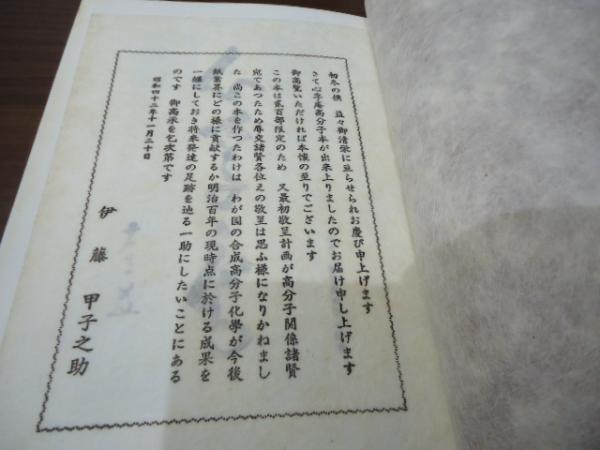 初冬の候　益々御清栄に亘らせられお慶び申上げます
さて心平庵高分子本が出来上りましたのでお届け申し上げます
御高覧いただければ本懐の至りでございます
この本は貳百部限定のため　又最初敬呈計画が高分子関係諸賢
宛であつたため辱交諸賢各位えの敬呈は思ふ様になりかねまし
た　尚この本を作つたわけは　わが国の合成高分子化學が今後
紙業界にどの様に貢献するか明治百年の現時点に於ける成果を
一纒にしておき将来発達の足跡を辿る一助にしたいことにある
のです　御高承を乞次第です
昭和四十三年十一月二十日
伊藤　甲子之助